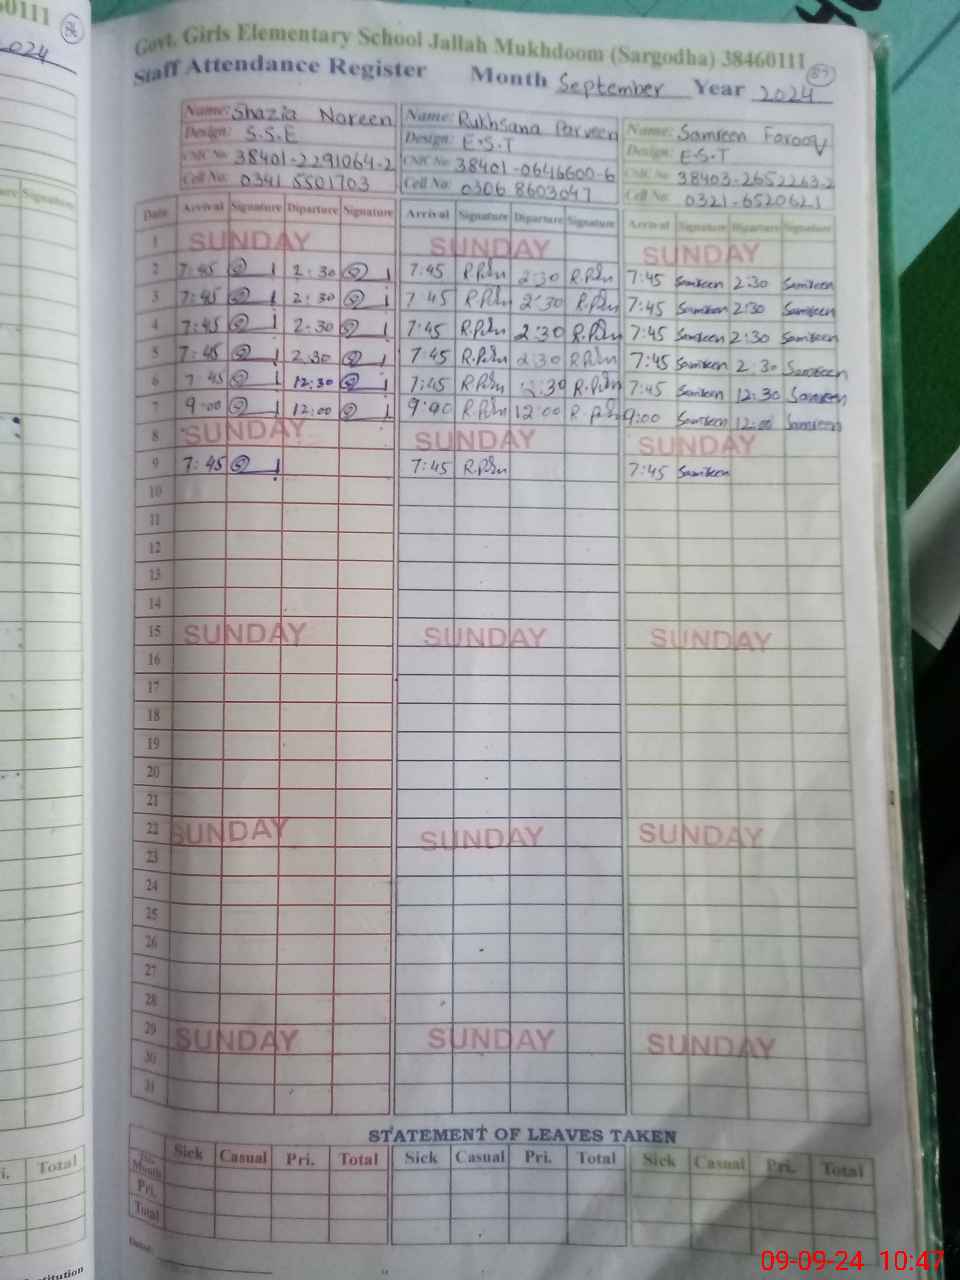 0111 86
2024
Govt. Girls Elementary School Jallah Mukhdoom (Sargodha) 38460111
87
Staff Attendance Register Month September Year 2024
Name: Shazia Noreen Name: Rukhsana Parveen Name: Samreen Farooq
Design: S.S.E Design: E.S.T Design: E-S-T
CNIC No. 38401-2291064-2 CNIC No. 38401-0646600-6 CNIC No. 38403-2652263-2
Cell No: 0341 5501703 Cell No: 0306 8603047 Cell No: 0321-6520621
Date Arrival Signature Diparture Signature Arrival Signature Diparture Signature Arrival Signature Diparture Signature
1 SUNDAY SUNDAY SUNDAY
2 7:45 2:30 7:45 2:30 7:45 Samreen 2:30 Samreen
3 7:45 2:30 7:45 2:30 7:45 Samreen 2:30 Samreen
4 7:45 2:30 7:45 2:30 7:45 Samreen 2:30 Samreen
5 7:45 2:30 7:45 2:30 7:45 Samreen 2:30 Samreen
6 7:45 12:30 7:45 7:45 Samreen 12:30 Samreen
7 9:00 12:00 9:00 12:00 9:00 Samreen 12:00 Samreen
8 SUNDAY SUNDAY SUNDAY
9 7:45 7:45 7:45 Samreen
10
11
12
13
14
15 SUNDAY SUNDAY SUNDAY
16
17
18
19
20
21
22 SUNDAY SUNDAY SUNDAY
23
24
25
26
27
28
29 SUNDAY SUNDAY SUNDAY
30
31
STATEMENT OF LEAVES TAKEN
Sick Casual Pri. Total Sick Casual Pri. Total Sick Casual Pri. Total
This Month
Pri.
Total
Signature
Total
09-09-24 10:47